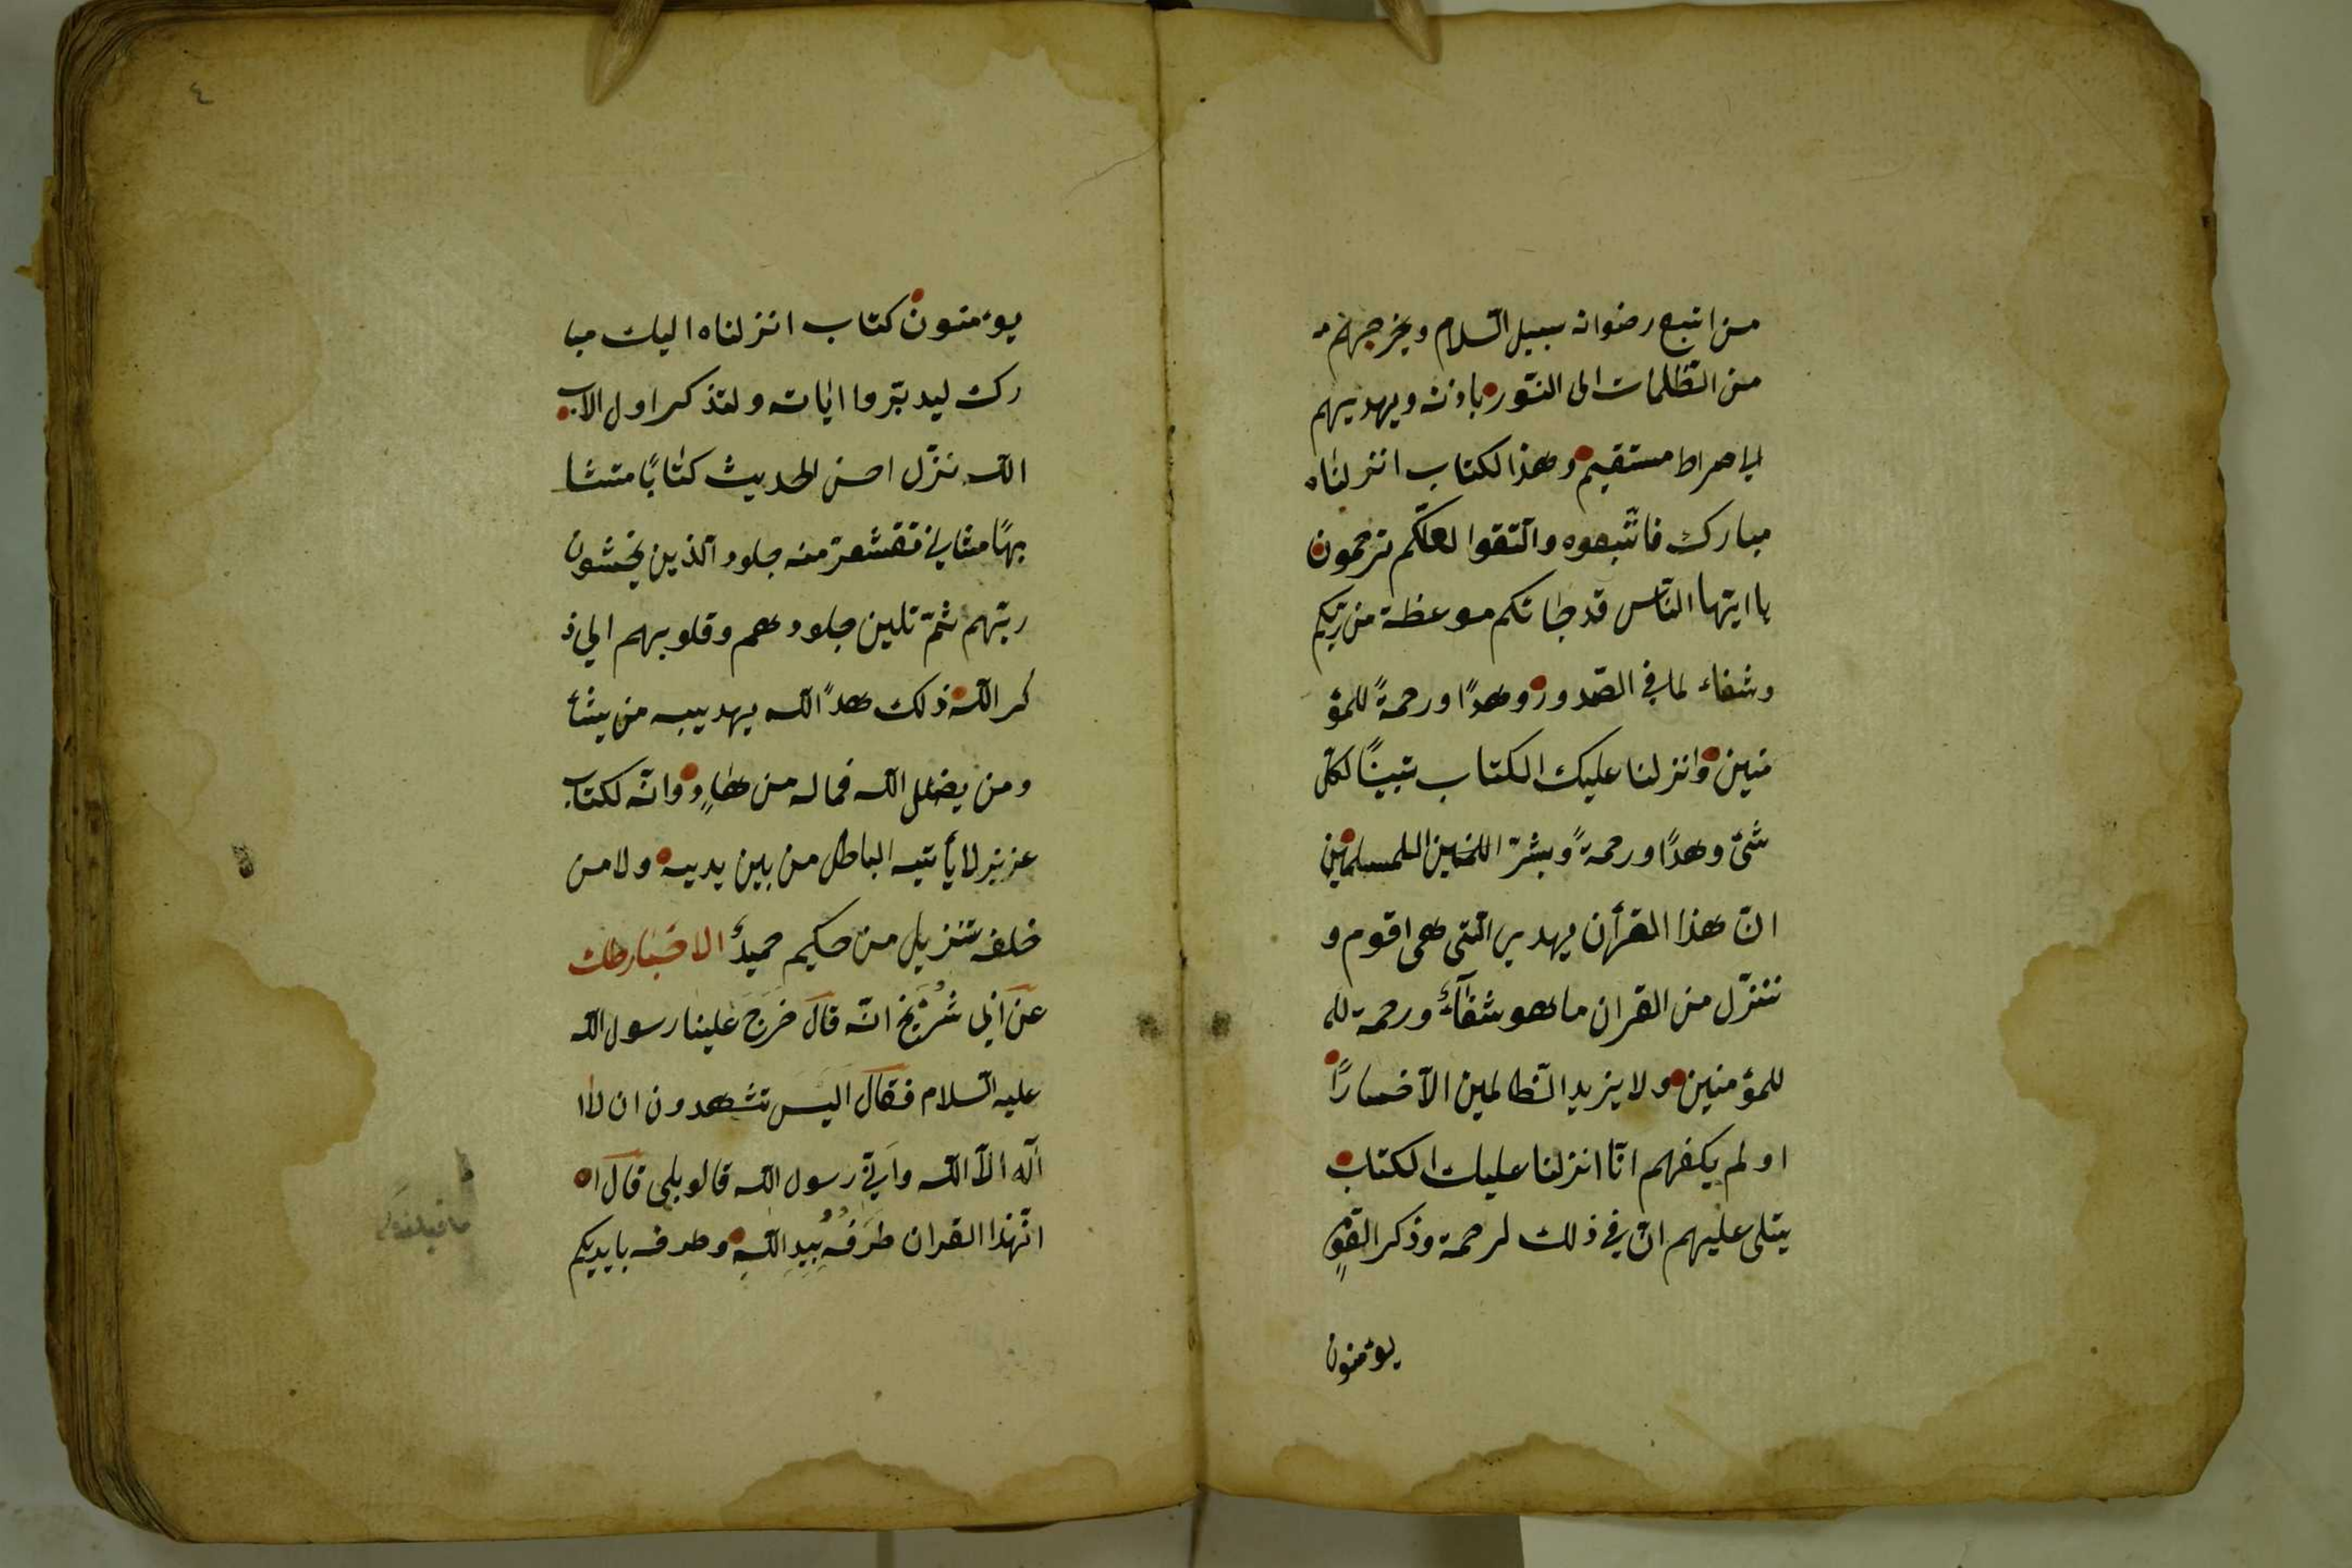 من اتبع رضوانه سبيل السلام ويخرجهم
من الظلمات الى النور باذنه ويهديهم
الى صراط مستقيم وهذا لكتاب انزلناه
مبارك فاتبعوه واتقوا لعلكم ترحمون
يا ايتها الناس قد جاتكم موعظة من ربكم
وشفاء لما في الصدور وهدًا ورحمةً للمؤ
منين وانزلنا عليك الكتاب تبينًا لكل
شئ وهدًا ورحمةً وبشر المسلمين
ان هذا القرأن يهدى التى هى اقوم و
ننزل من القران ما هو شفآء ورحمة لل
للمؤمنين ولا يزيد الظالمين الا خسارًا
اولم يكفهم انا انزلنا عليك الكتاب
يتلى عليهم ان في ذلك لرحمة وذكر القوم
يؤمنون
٤
يؤمنون كتاب انزلناه اليك مبا
رك ليدبروا ايات ولتذكر اول الاب
الله نزل احسن الحديث كتابًا متشا
بهًا مثاني تقشعر منه جلود الذين يخشون
ربهم ثم تلين جلودهم وقلوبهم الى ذ
كر الله ذلك هدً الله يهديبه من يشأ
ومن يضلل الله فماله من هادٍ وانه لكتاب
عزيز لا يأتيه الباطل من بين يديه ولا من
خلفه تنزيل من حكيم حميد الاخبار
عن ابي شريخ انه قال خرج علينا رسول الله
عليه السلام فقال اليس تشهدون ان لا ا
اله الا الله واني رسول الله قالو بلى قال
ان هذا القران طرفه بيد الله وطرفه بايديكم